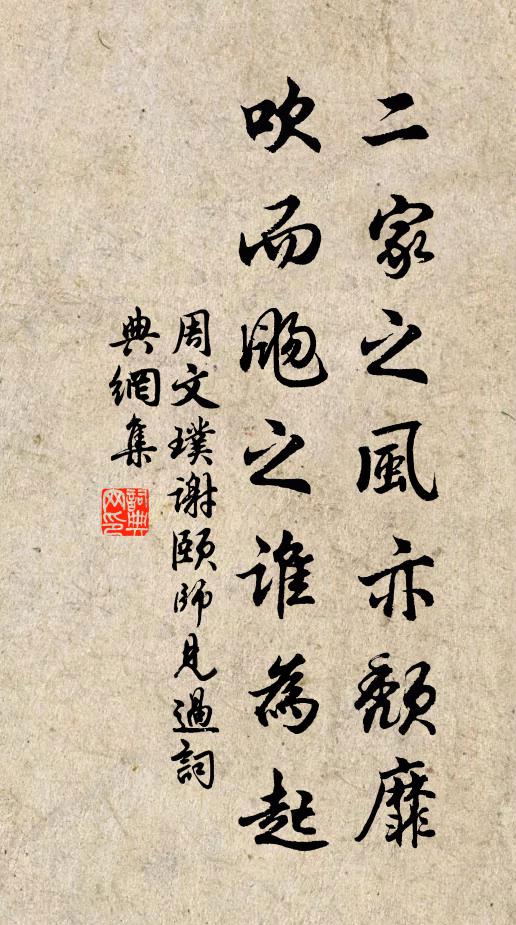 二家之風亦頹靡
吹而颺之誰為起
周文璞謝頤師見過詞
典網集
詞典網印